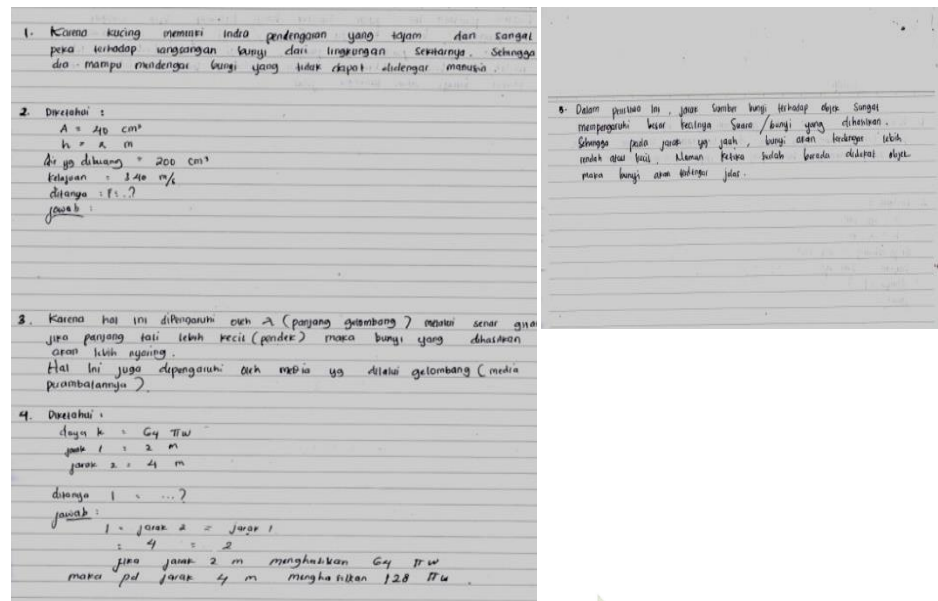 1. Karena kucing memiliki Indra pendengaran yang tajam dan sangat
peka terhadap rangsangan bunyi dari lingkungan sekitarnya. Sehingga
dia mampu mendengar bunyi yang tidak dapat didengar manusia.
2. Diketahui :
A = 40 cm²
h = 2 m
Air yg dibuang = 200 cm³
Kelajuan = 340 m/s
ditanya : F : ..?
jawab :
3. Karena hal ini dipengaruhi oleh λ (panjang gelombang) melalui senar
jika panjang tali lebih kecil (pendek) maka bunyi yang dihasilkan
akan lebih nyaring.
Hal Ini juga dipengaruhi oleh media yg dilalui gelombang (media
perambatannya).
4. Diketahui :
daya k : 64 π W
jarak 1 : 2 m
jarak 2 = 4 m
ditanya I = ...?
jawab :
I = jarak 2 = jarak 1
= 4 = 2
jika jarak 2 m menghasilkan 64 π W
maka pd jarak 4 m menghasilkan 128 π W.
5. Dalam peristiwa Ini, jarak Sumber bunyi terhadap objek Sangat
mempengaruhi besar kecilnya Suara / bunyi yang dihasilkan.
Sehingga pada jarak yg jauh, bunyi akan terdengar lebih
rendah atau kecil. Namun ketika Sudah berada didekat objek
maka bunyi akan terdengar jelas.